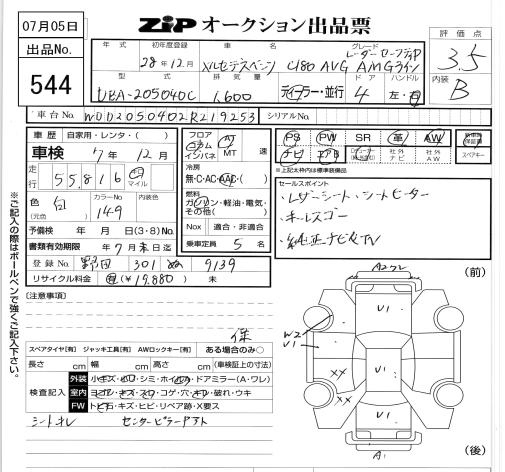 07月05日
出品No.
544
ZIP オークション出品票
評価点
3.5
内装
B
年式 初年度登録 車名 グレード
28年12月 メルセデスベンツ C180 AVG AMGライン
レーダーセーフティP
型式 排気量 ドア ハンドル
DBA-205040C 1,600 ディーラー・並行 4 左・右
車台No. WDD2050402R219253 シリアルNo.
車歴 自家用・レンタ( )
車検 17年12月
走行 55,816 km マイル
色(元色) 白 カラーNo. 149 内装色
予備検 年 月 日(3・8)No.
書類有効期限 年7月末日迄
登録No. 野田 301 ぬ 9139
リサイクル料金 有(¥19,880) 未
フロア コラム インパネ AT MT 速
冷房 無・C・AC・AAC・( )
燃料 ガソリン・軽油・電気・その他( )
Nox 適合・非適合
乗車定員 5 名
PS PW SR 革 AW
ナビ エアB 社外ナビ 社外AW
新車時保証書
スペアキー
※上記太枠内は標準装備品
セールスポイント
・レザーシート・シートヒーター
・キーレスゴー
・純正ナビ&TV
※ご記入の際はボールペンで強くご記入下さい。
[注意事項]
保
スペアタイヤ[有] ジャッキ工具[有] AWロックキー[有] ある場合のみ○
長さ cm 幅 cm 高さ cm (車検証上の寸法)
検査記入
外装 小キズ・凹・シミ・ホイール・ドアミラー(A・ワレ)
室内 ヨゴレ・キズ・スレ・コゲ・穴・キレ・破れ・ウキ
FW トビ石・キズ・ヒビ・リペア跡・X要ス
シートオレ センターピラーアト
(前)
A2
U1
W2
U1
U1
XX
XX
U1
A1
(後)